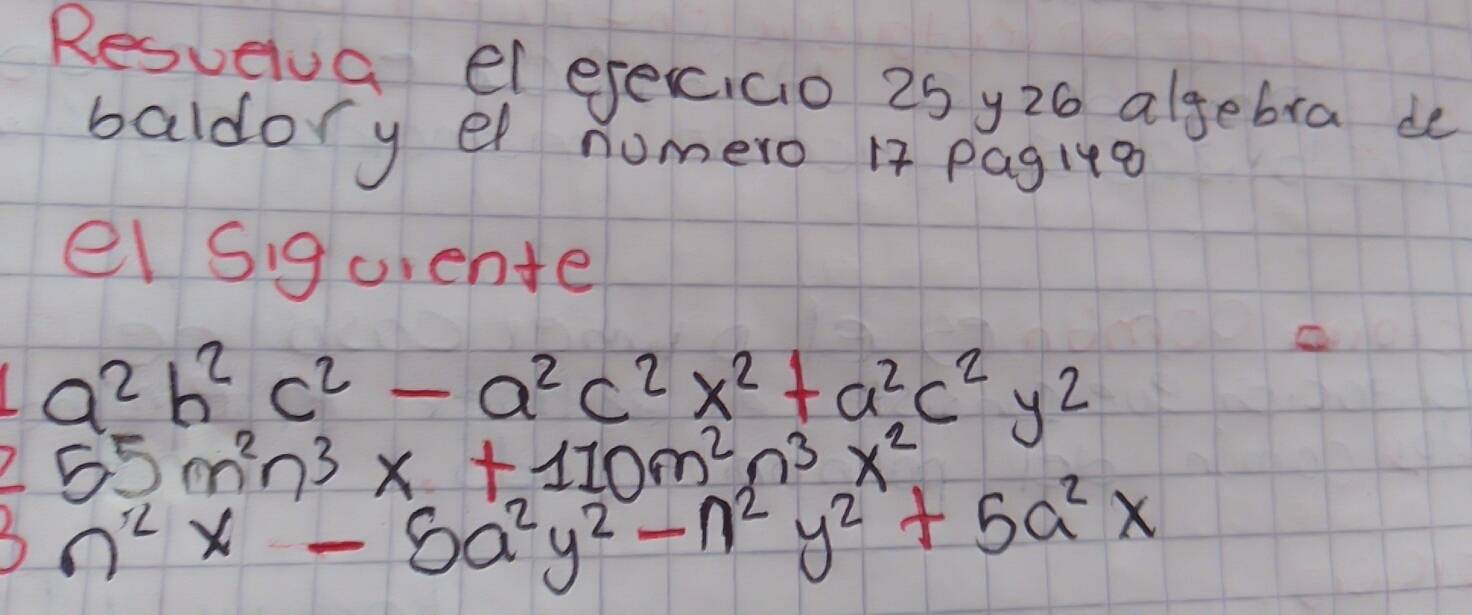 Resuelva el ejercicio 25 y 26 algebra de
baldor y el numero 17 pag 148
el siguiente
1 a²b²c² - a²c²x² + a²c²y²
2 55m²n³x + 110m²n³x²
3 n²x - 5a²y² - n²y² + 5a²x